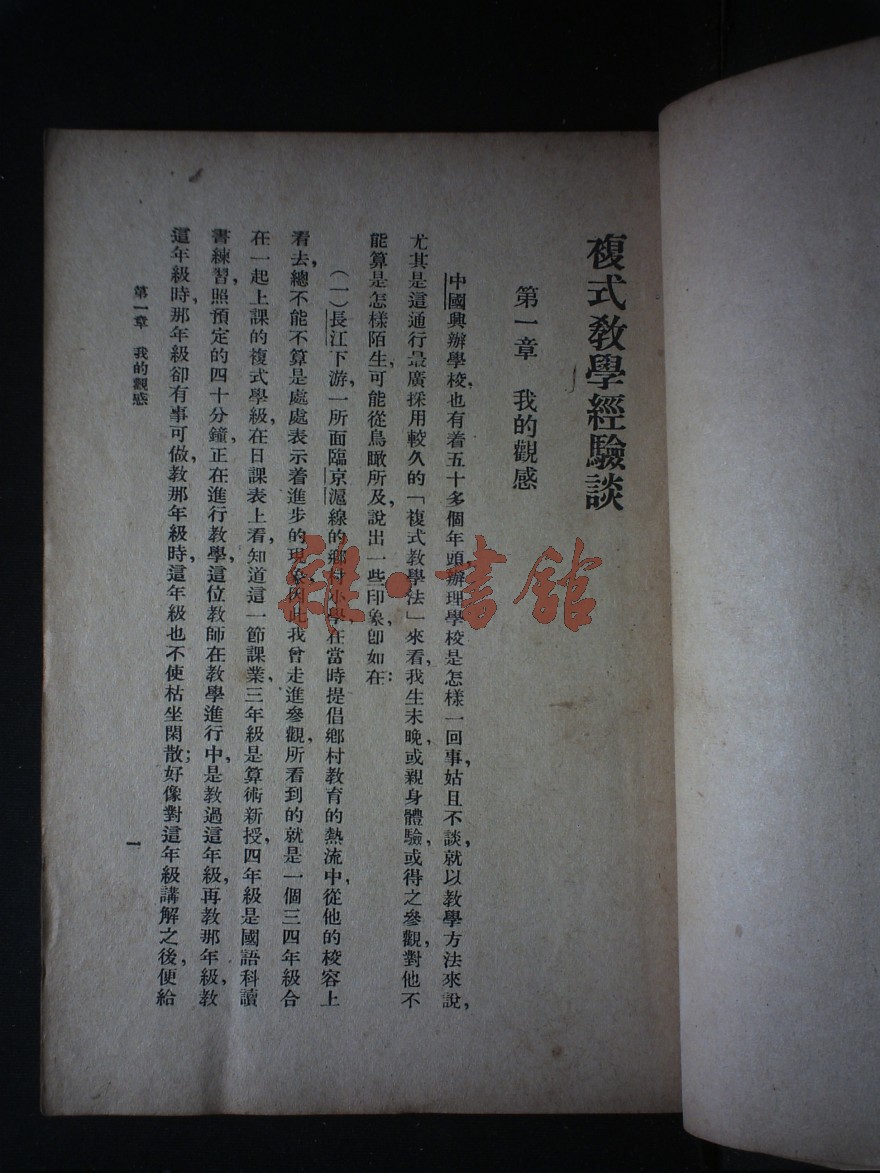 複式教學經驗談
第一章　我的觀感
中國興辦學校，也有着五十多個年頭，辦理學校是怎樣一回事，姑且不談，就以教學方法來說，
尤其是這通行最廣採用較久的「複式教學法」來看，我生未晚，或親身體驗，或得之參觀，對他不
能算是怎樣陌生，可能從鳥瞰所及，說出一些印象，卽如在：
（一）長江下游，一所面臨京滬線的鄉村小學，在當時提倡鄉村教育的熱流中，從他的校容上
看去，總不能不算是處處表示着進步的現象，因此我曾走進參觀，所看到的就是一個三四年級合
在一起上課的複式學級，在日課表上看，知道這一節課業，三年級是算術新授，四年級是國語科讀
書練習，照預定的四十分鐘，正在進行教學，這位教師在教學進行中，是教過這年級，再教那年級，教
這年級時，那年級卻有事可做，教那年級時，這年級也不使枯坐閑散；好像對這年級講解之後，便給
第一章　我的觀感
一
雜·書館